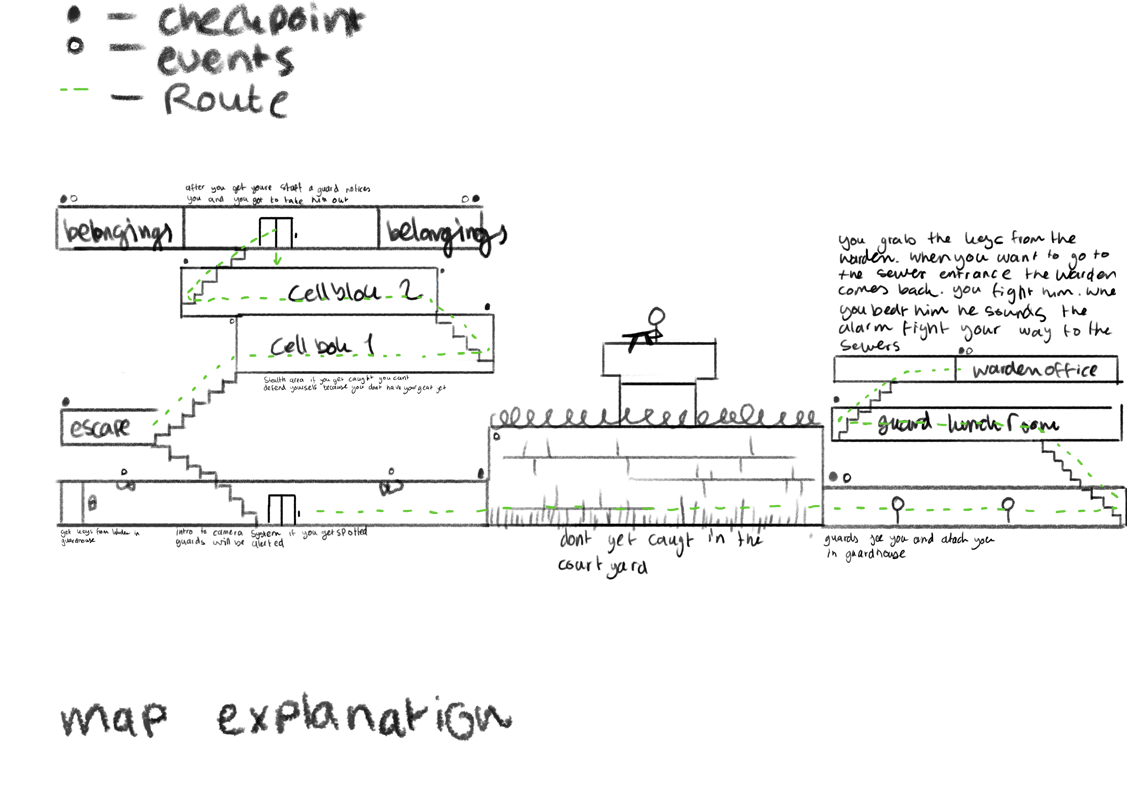 — checkpoint
— events
— Route
after you get youre stuff a guard notices
you and you got to take him out
belongings
belongings
cellblock 2
Cell block 1
Stealth area if you get caught you cant
defend yourself because you dont have your gear yet
escape
get keys from warden in
guardhouse
intro to camera system if you get spotted
guards will be alerted
dont get caught in the
court yard
you grab the keys from the
warden. when you want to go to
the sewer entrance the warden
comes back. you fight him. whe
you beat him he sounds the
alarm fight your way to the
sewers
warden office
guard lunch room
guards see you and attack you
in guardhouse
map explanation